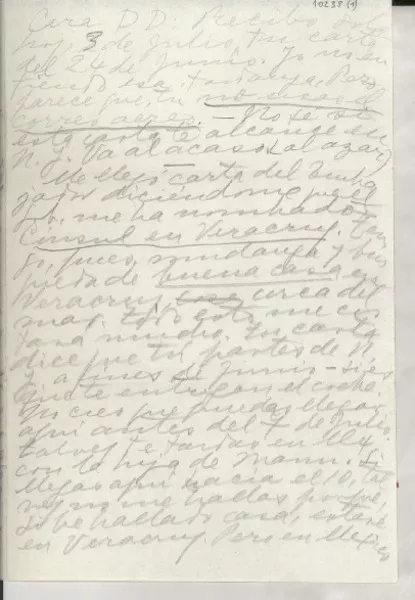 10238 (1)
Cara D D. Recibo sólo
hoy, 3 de Julio, tu carta
del 24 de Junio. Yo no en
tiendo esa tardanza. Pero
parece que tú no usas el
correo aéreo. - No sé si
esta carta te alcance en
N. Y. Va al acaso (al azar)
Me llegó carta del Emba
jador diciéndome que el
me ha nombrado
Cónsul en Veracruz. Ten
go, pues, mudanza y bús
queda de buena casa en
Veracruz, cerca del
mar. Todo esto me cos
tará mucho. Tu carta
dice que tú partes de N.
Y. a fines de Junio - si es
que te entregan el coche.
No creo que puedas llegar
aquí antes del 7 de Julio.
Talvez te tardas en
con la hija de Mann. Si
llegas aquí hacia el 10, tal
vez no me hallas porque,
si he hallado casa, estaré
en Veracruz. Pero en México